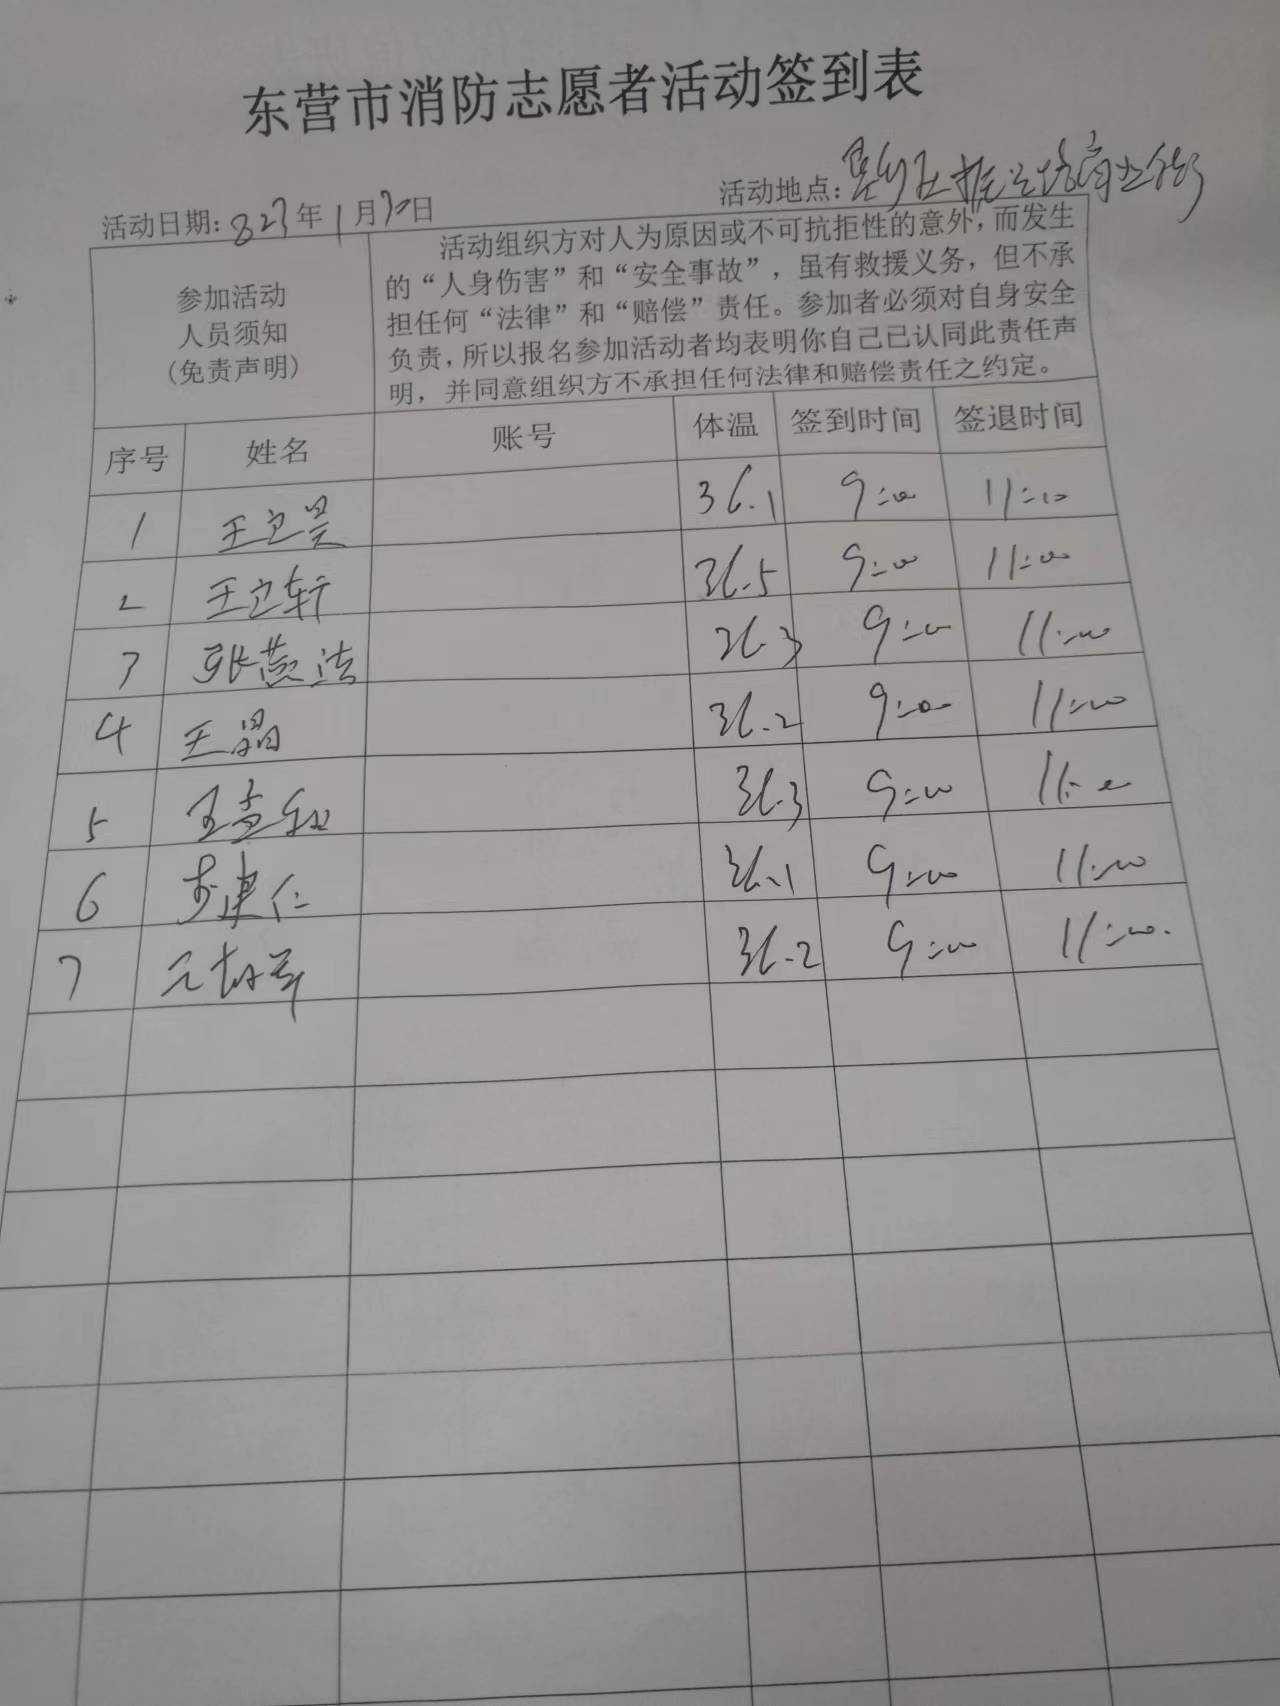 东营市消防志愿者活动签到表
活动日期: 323年1月30日
活动地点:
参加活动
人员须知
(免责声明)
活动组织方对人为原因或不可抗拒性的意外,而发生
的“人身伤害”和“安全事故”,虽有救援义务,但不承
担任何“法律”和“赔偿”责任。参加者必须对自身安全
负责,所以报名参加活动者均表明你自己已认同此责任声
明,并同意组织方不承担任何法律和赔偿责任之约定。
序号 姓名 账号 体温 签到时间 签退时间
1 王卫昊 36.1 9:00 11:00
2 王卫轩 36.5 9:00 11:00
3 张燕洁 36.3 9:00 11:00
4 王晶 36.2 9:00 11:00
5 王孟 36.3 9:00 11:00
6 建仁 36.1 9:00 11:00
7 36.2 9:00 11:00.